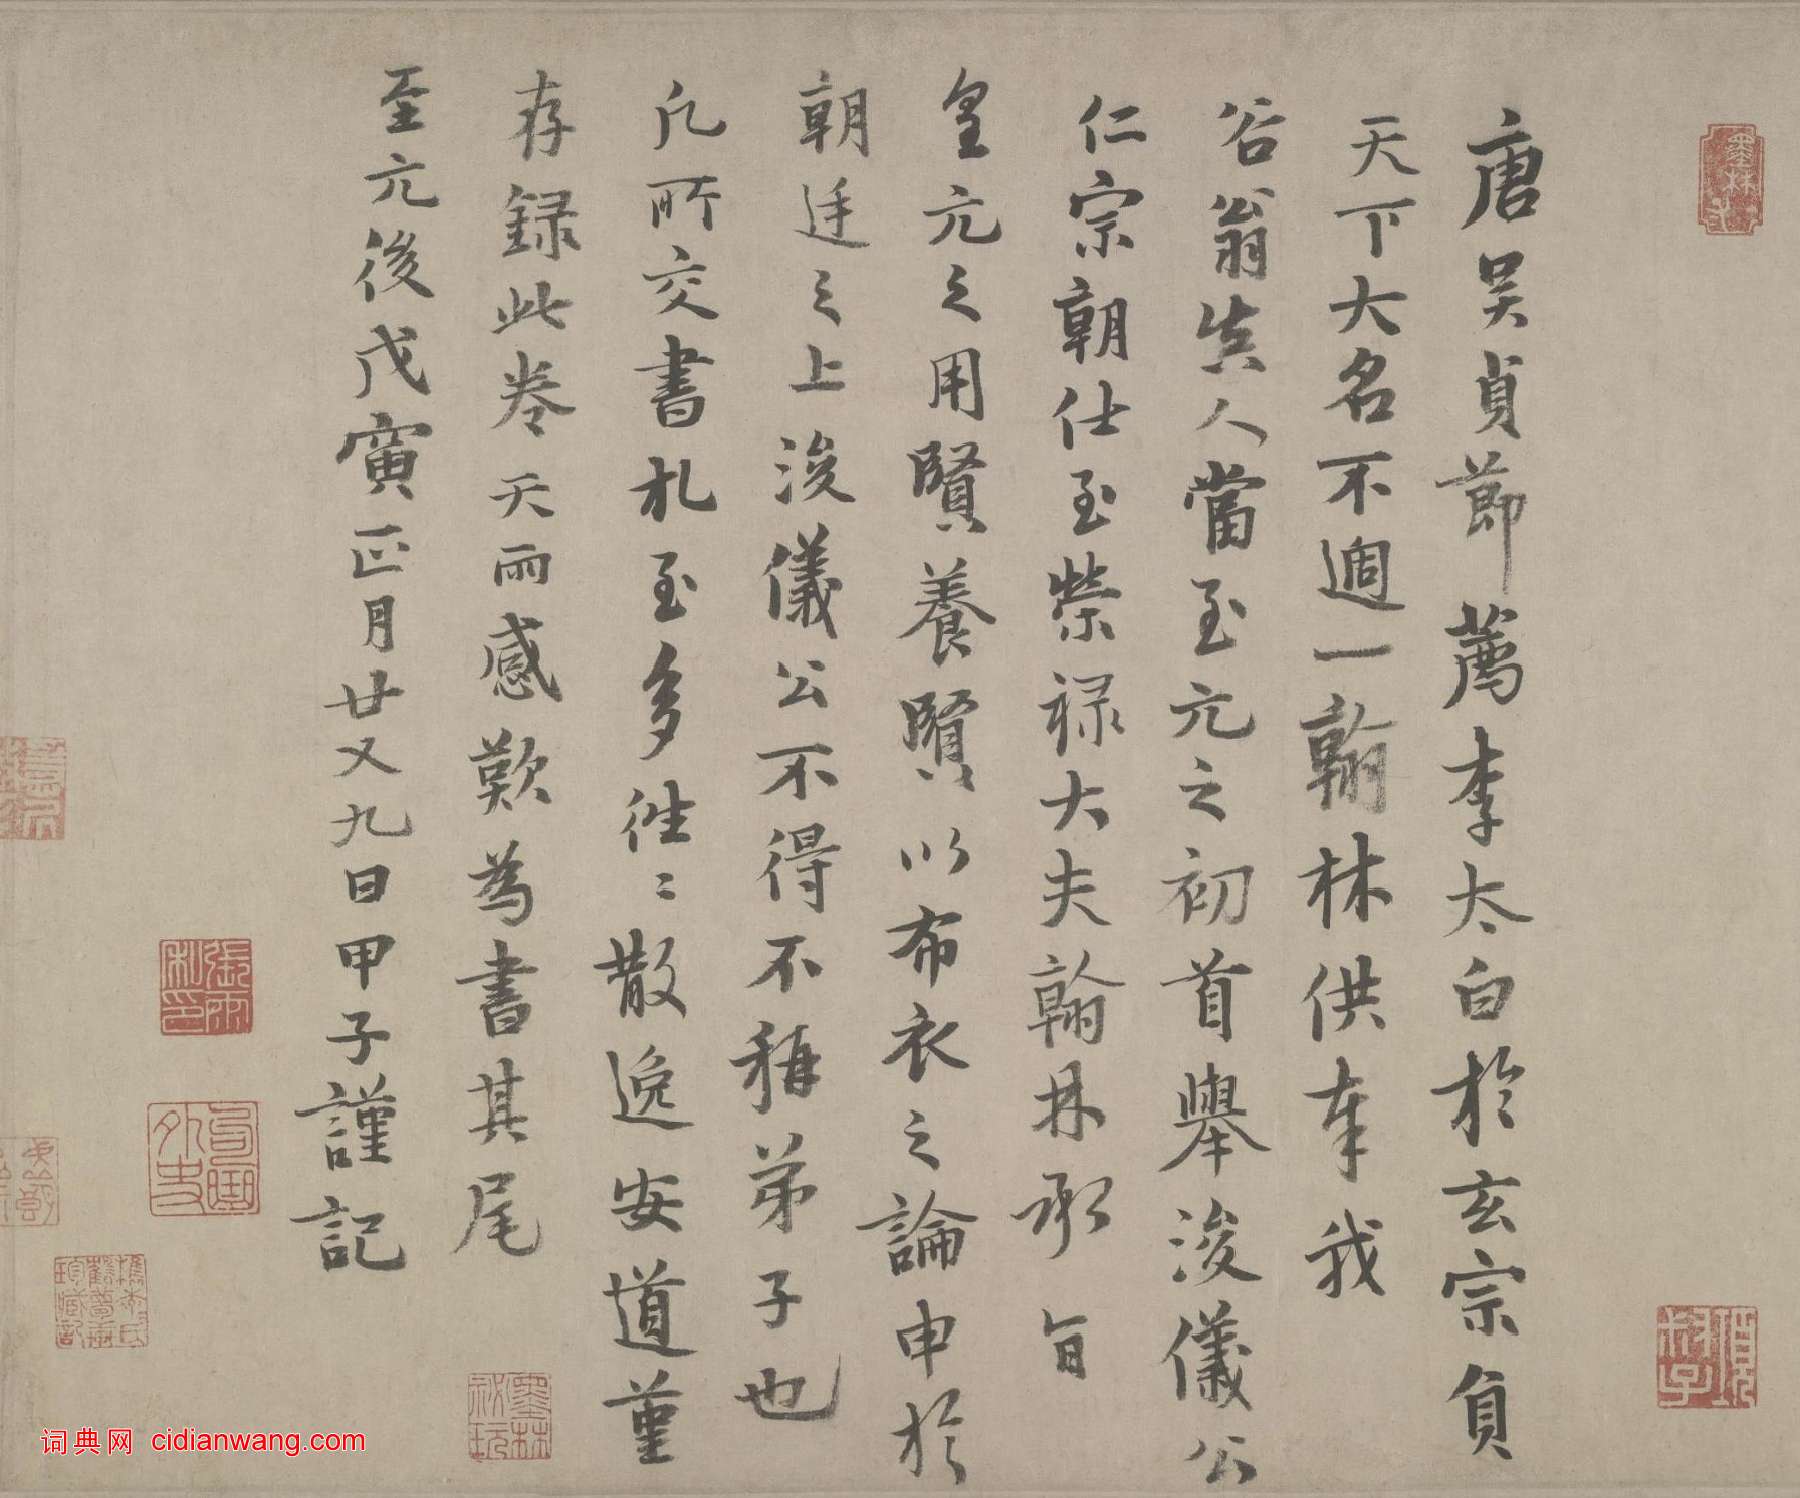 唐吴貞節薦李太白於玄宗負
天下大名不過一翰林供奉我
谷翁真人當至元之初首舉浚儀公
仁宗朝仕至榮禄大夫翰林承旨
皇元之用賢養賢以布衣之論申於
朝廷之上浚儀公不得不稱弟子也
凡所交書札至多徃〻散逸安道堇
存録此卷天雨感歎為書其尾
至元後戊寅正月廿又九日甲子謹記
張雨私印
墨林祕玩
項墨林父
词典网 cidianwang.com